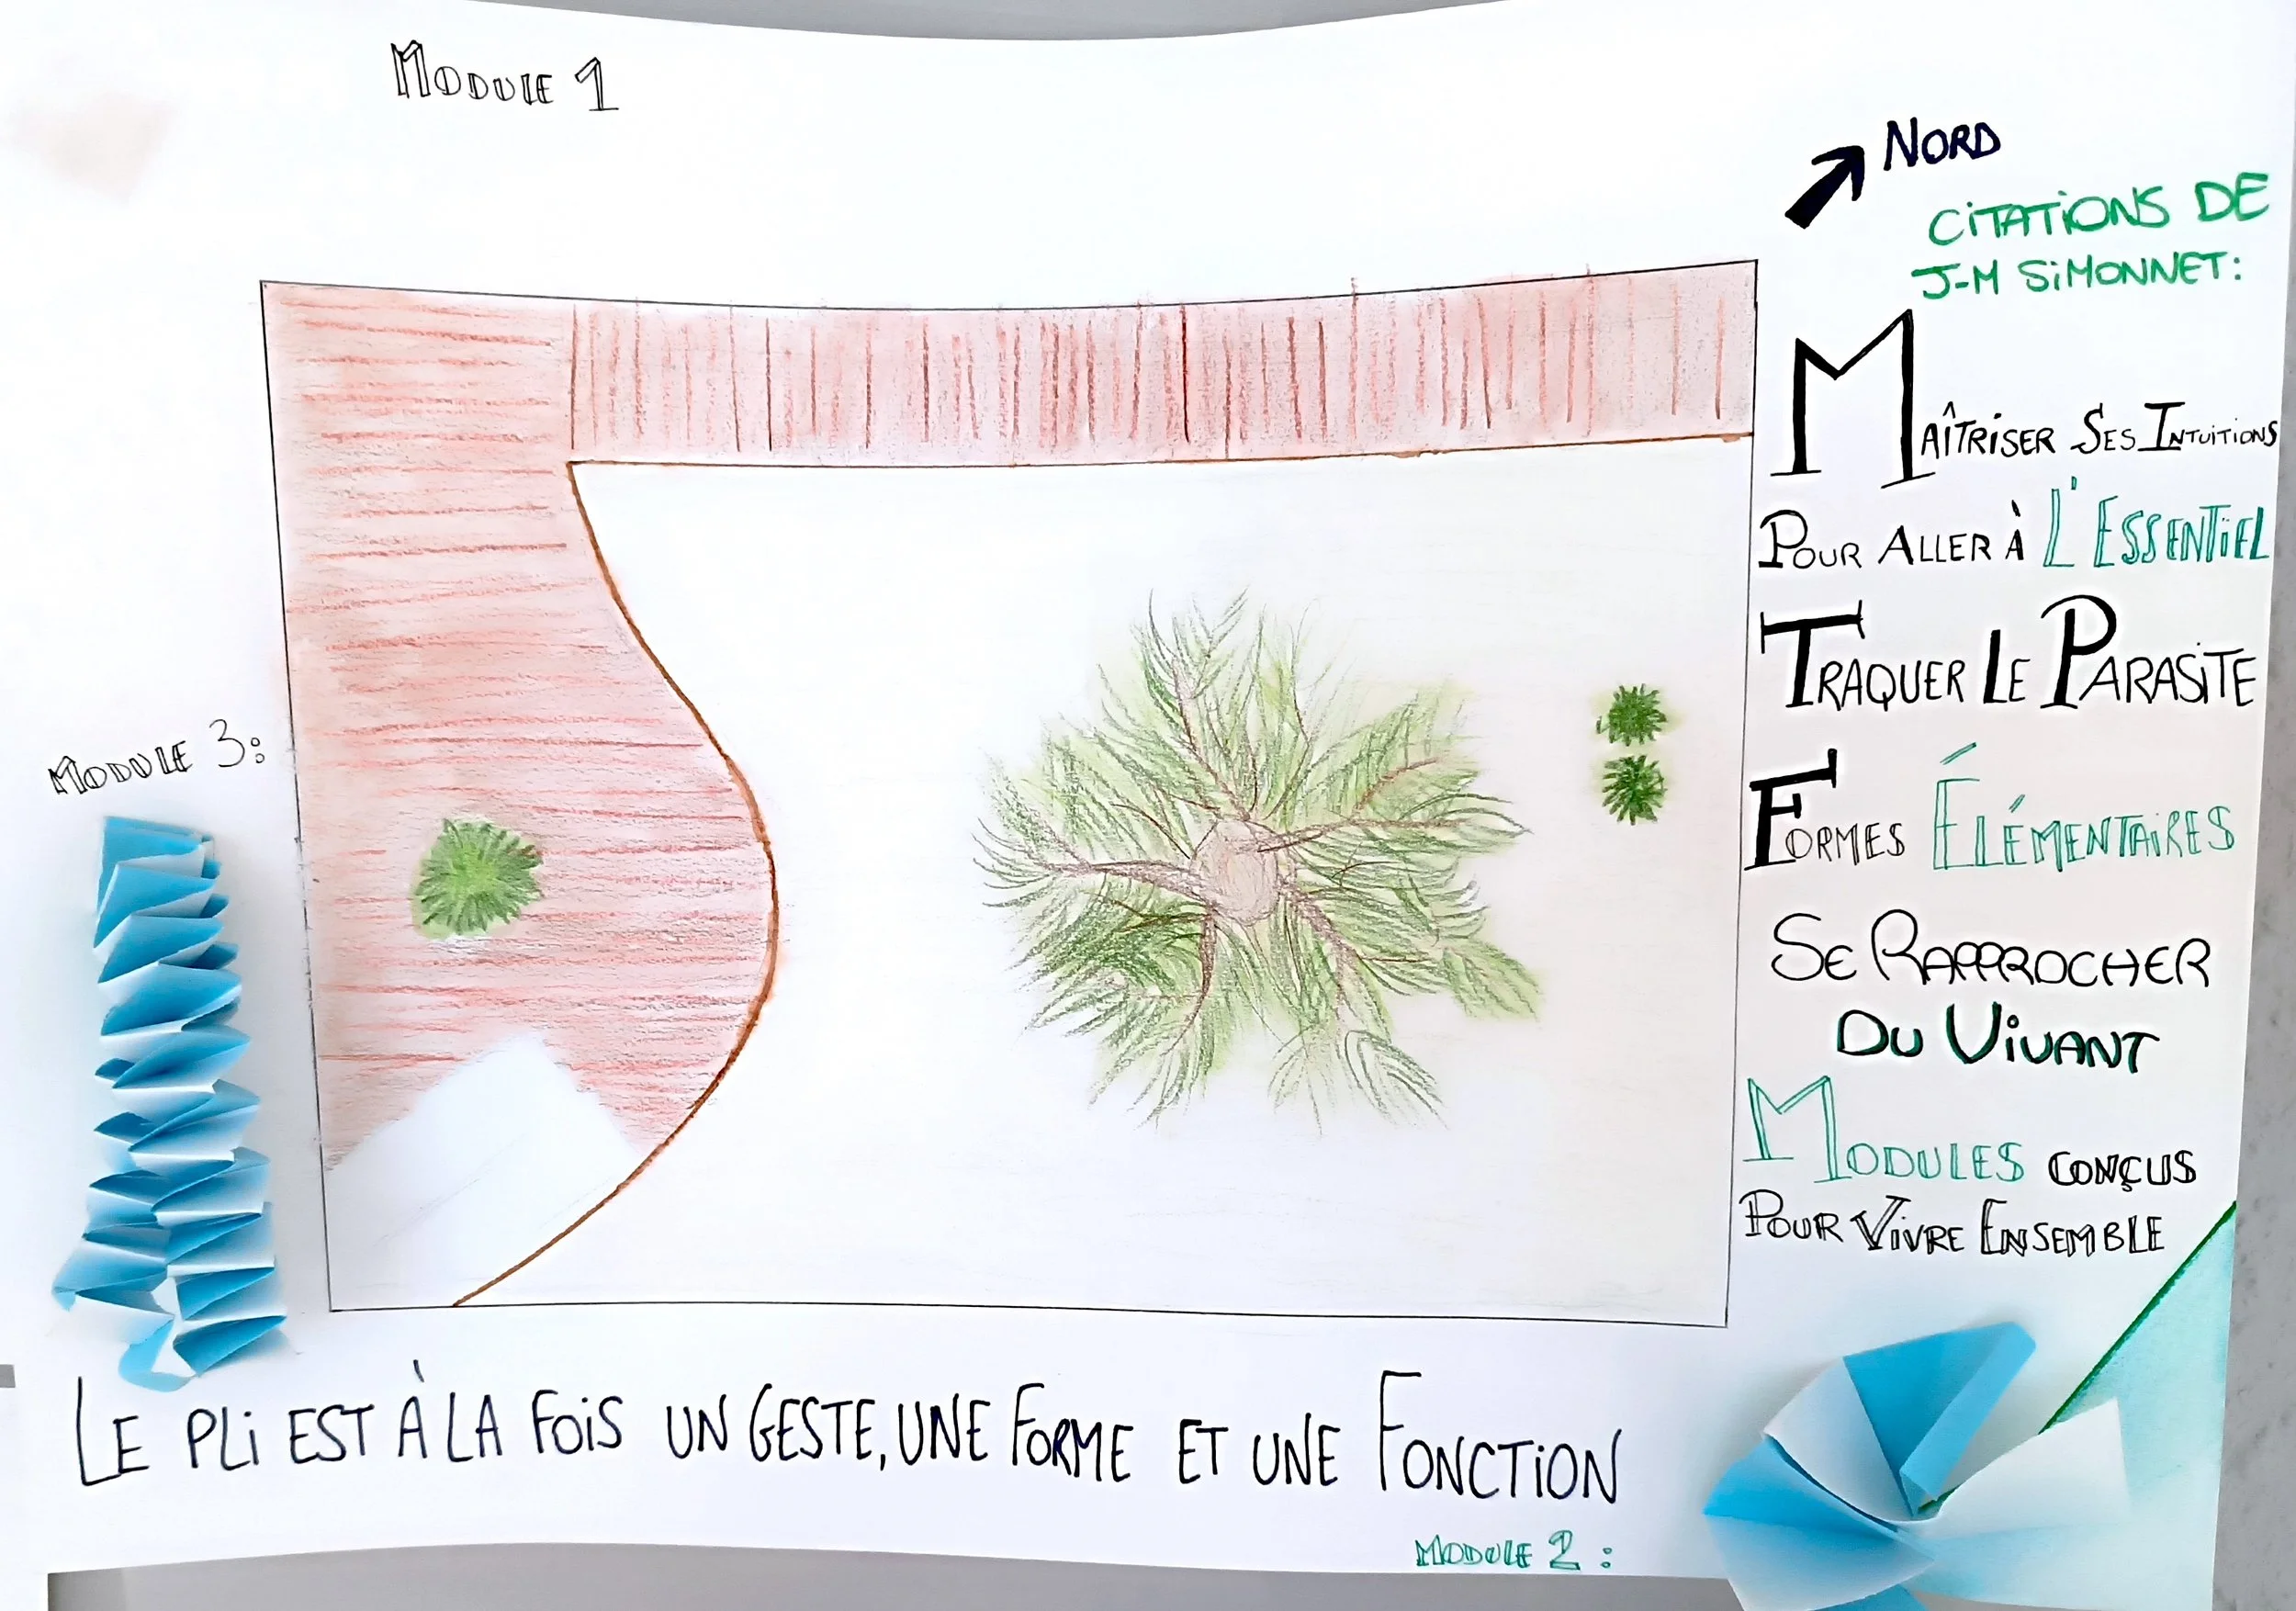 MODULE 1
NORD
CITATIONS DE
J-M SIMONNET:
MAÎTRISER SES INTUITIONS
POUR ALLER À L'ESSENTIEL
TRAQUER LE PARASITE
FORMES ÉLÉMENTAIRES
SE RAPPROCHER
DU VIVANT
MODULES CONÇUS
POUR VIVRE ENSEMBLE
MODULE 3:
LE PLI EST À LA FOIS UN GESTE, UNE FORME ET UNE FONCTION
MODULE 2: